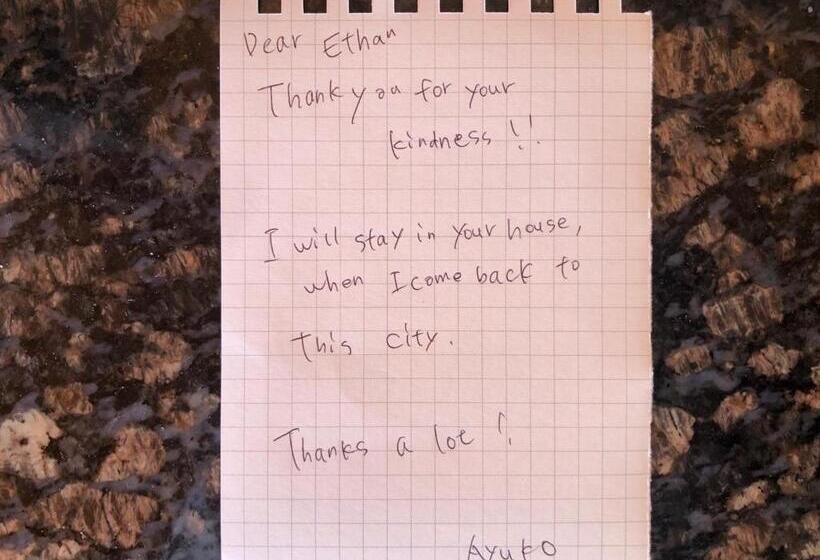 Dear Ethan
Thank you for your
kindness!!
I will stay in your house,
when I come back to
this city.
Thanks a lot!
Ayuko